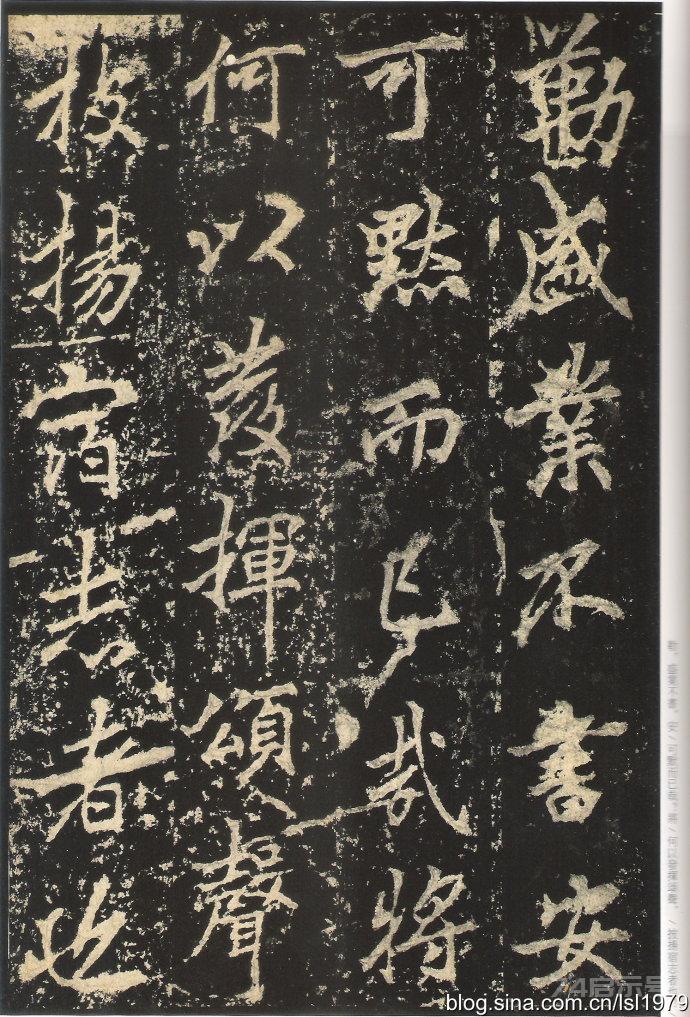 勤盛業不書安
可默而已哉將
何以發揮頌聲
披揚宿志者也
blog.sina.com.cn/lsl1979